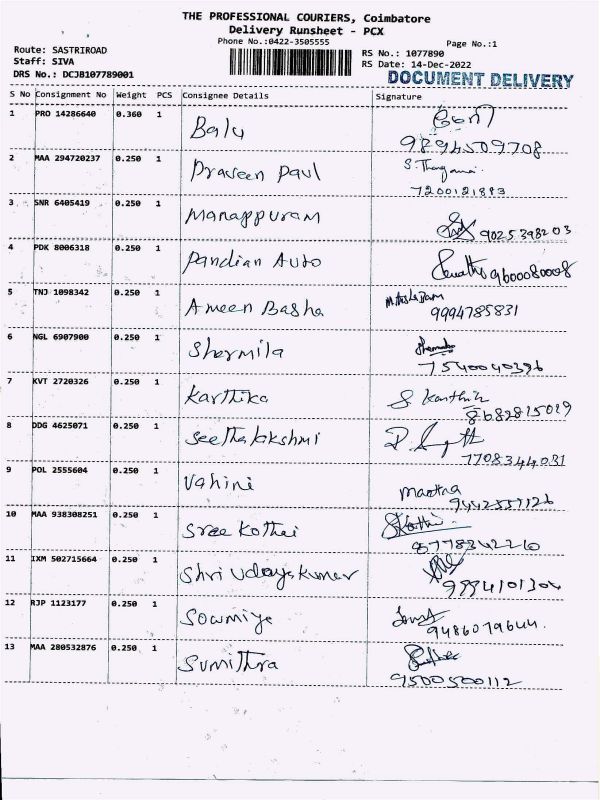 THE PROFESSIONAL COURIERS, Coimbatore
Delivery Runsheet - PCX
Phone No.:0422-3505555
Page No.:1
Route: SASTRIROAD
RS No.: 1077890
Staff: SIVA
RS Date: 14-Dec-2022
DRS No.: DCJB107789001
DOCUMENT DELIVERY
S No Consignment No Weight PCS Consignee Details Signature
1 PRO 14286640 0.360 1 Balu
9894509708
2 MAA 294720237 0.250 1 Praveen Paul
7200121893
3 SNR 6405419 0.250 1 Manappuram
9025398203
4 PDK 8006318 0.250 1 Pandian Auto
9600080008
5 TNJ 1098342 0.250 1 Ameen Basha
9994785831
6 NGL 6907900 0.250 1 Shermila
7540040396
7 KVT 2720326 0.250 1 Karthika S. Karthik
8682815029
8 DDG 4625071 0.250 1 Seethalakshmi
7708344031
9 POL 2555604 0.250 1 Vahini
9442557126
10 MAA 938308251 0.250 1 Sree Kothai
8778342210
11 IXM 502715664 0.250 1 Shri Udayskumar
9994101304
12 RJP 1123177 0.250 1 Sowmiya
9486079644.
13 MAA 280532876 0.250 1 Sumithra
9500500112